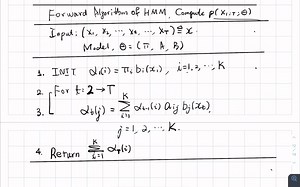 Forward Algorithm of HMM, Compute p(x₁:T; Θ)
Input: (x₁, x₂, ..., xₜ, ... x_T) ≜ x
Model, Θ = (Π, A, B)
1. INIT α₁(i) = πᵢ bᵢ(x₁), i=1,2,...,K
2. For t: 2 → T
3. αₜ(j) = Σᵢ₌₁ᴷ αₜ₋₁(i) aᵢⱼ bⱼ(xₜ)
j = 1, 2, ... K.
4. Return Σᵢ₌₁ᴷ α_T(i)